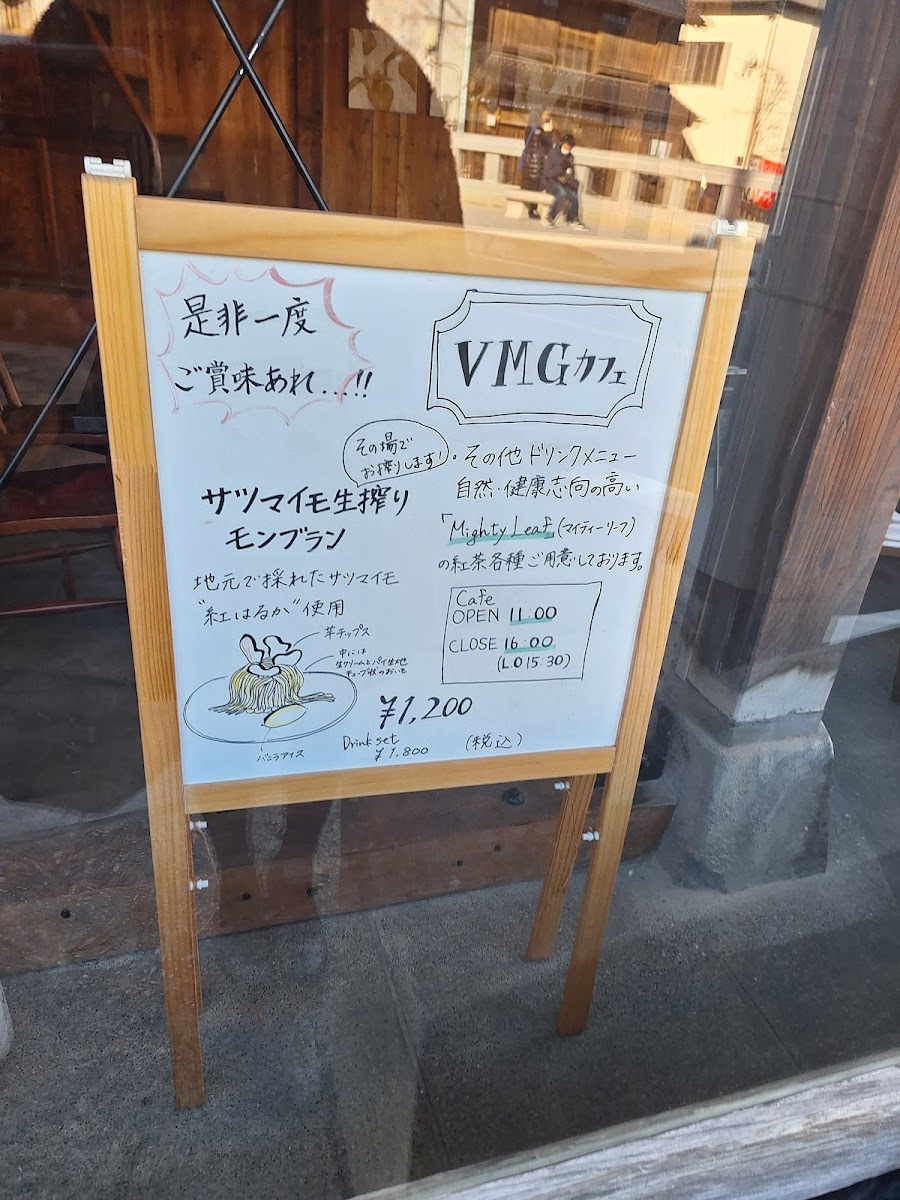 是非一度
ご賞味あれ...!!
VMGカフェ
その場で
お搾りします!
サツマイモ生搾り
モンブラン
地元で採れたサツマイモ
"紅はるか"使用
芋チップス
中には
生クリームとパイ生地
キューブ状のおいも
バニラアイス
¥1,200
Drink set
¥1,800
(税込)
・その他ドリンクメニュー
自然・健康志向の高い
「Mighty Leaf(マイティーリーフ)
の紅茶各種ご用意しております。
Cafe
OPEN 11:00
CLOSE 16:00
(L.O 15:30)